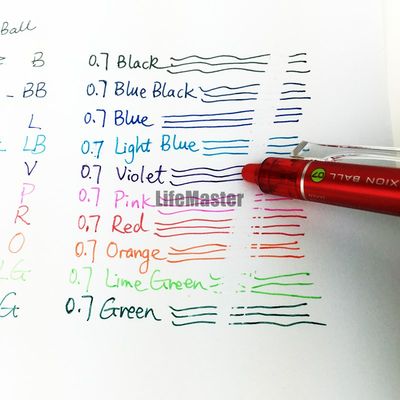 Ball
B 0.7 Black
BB 0.7 Blue Black
L 0.7 Blue
LB 0.7 Light Blue
V 0.7 Violet
P 0.7 Pink
LifeMaster
R 0.7 Red
O 0.7 Orange
LG 0.7 Lime Green
G 0.7 Green
XION BALL 07